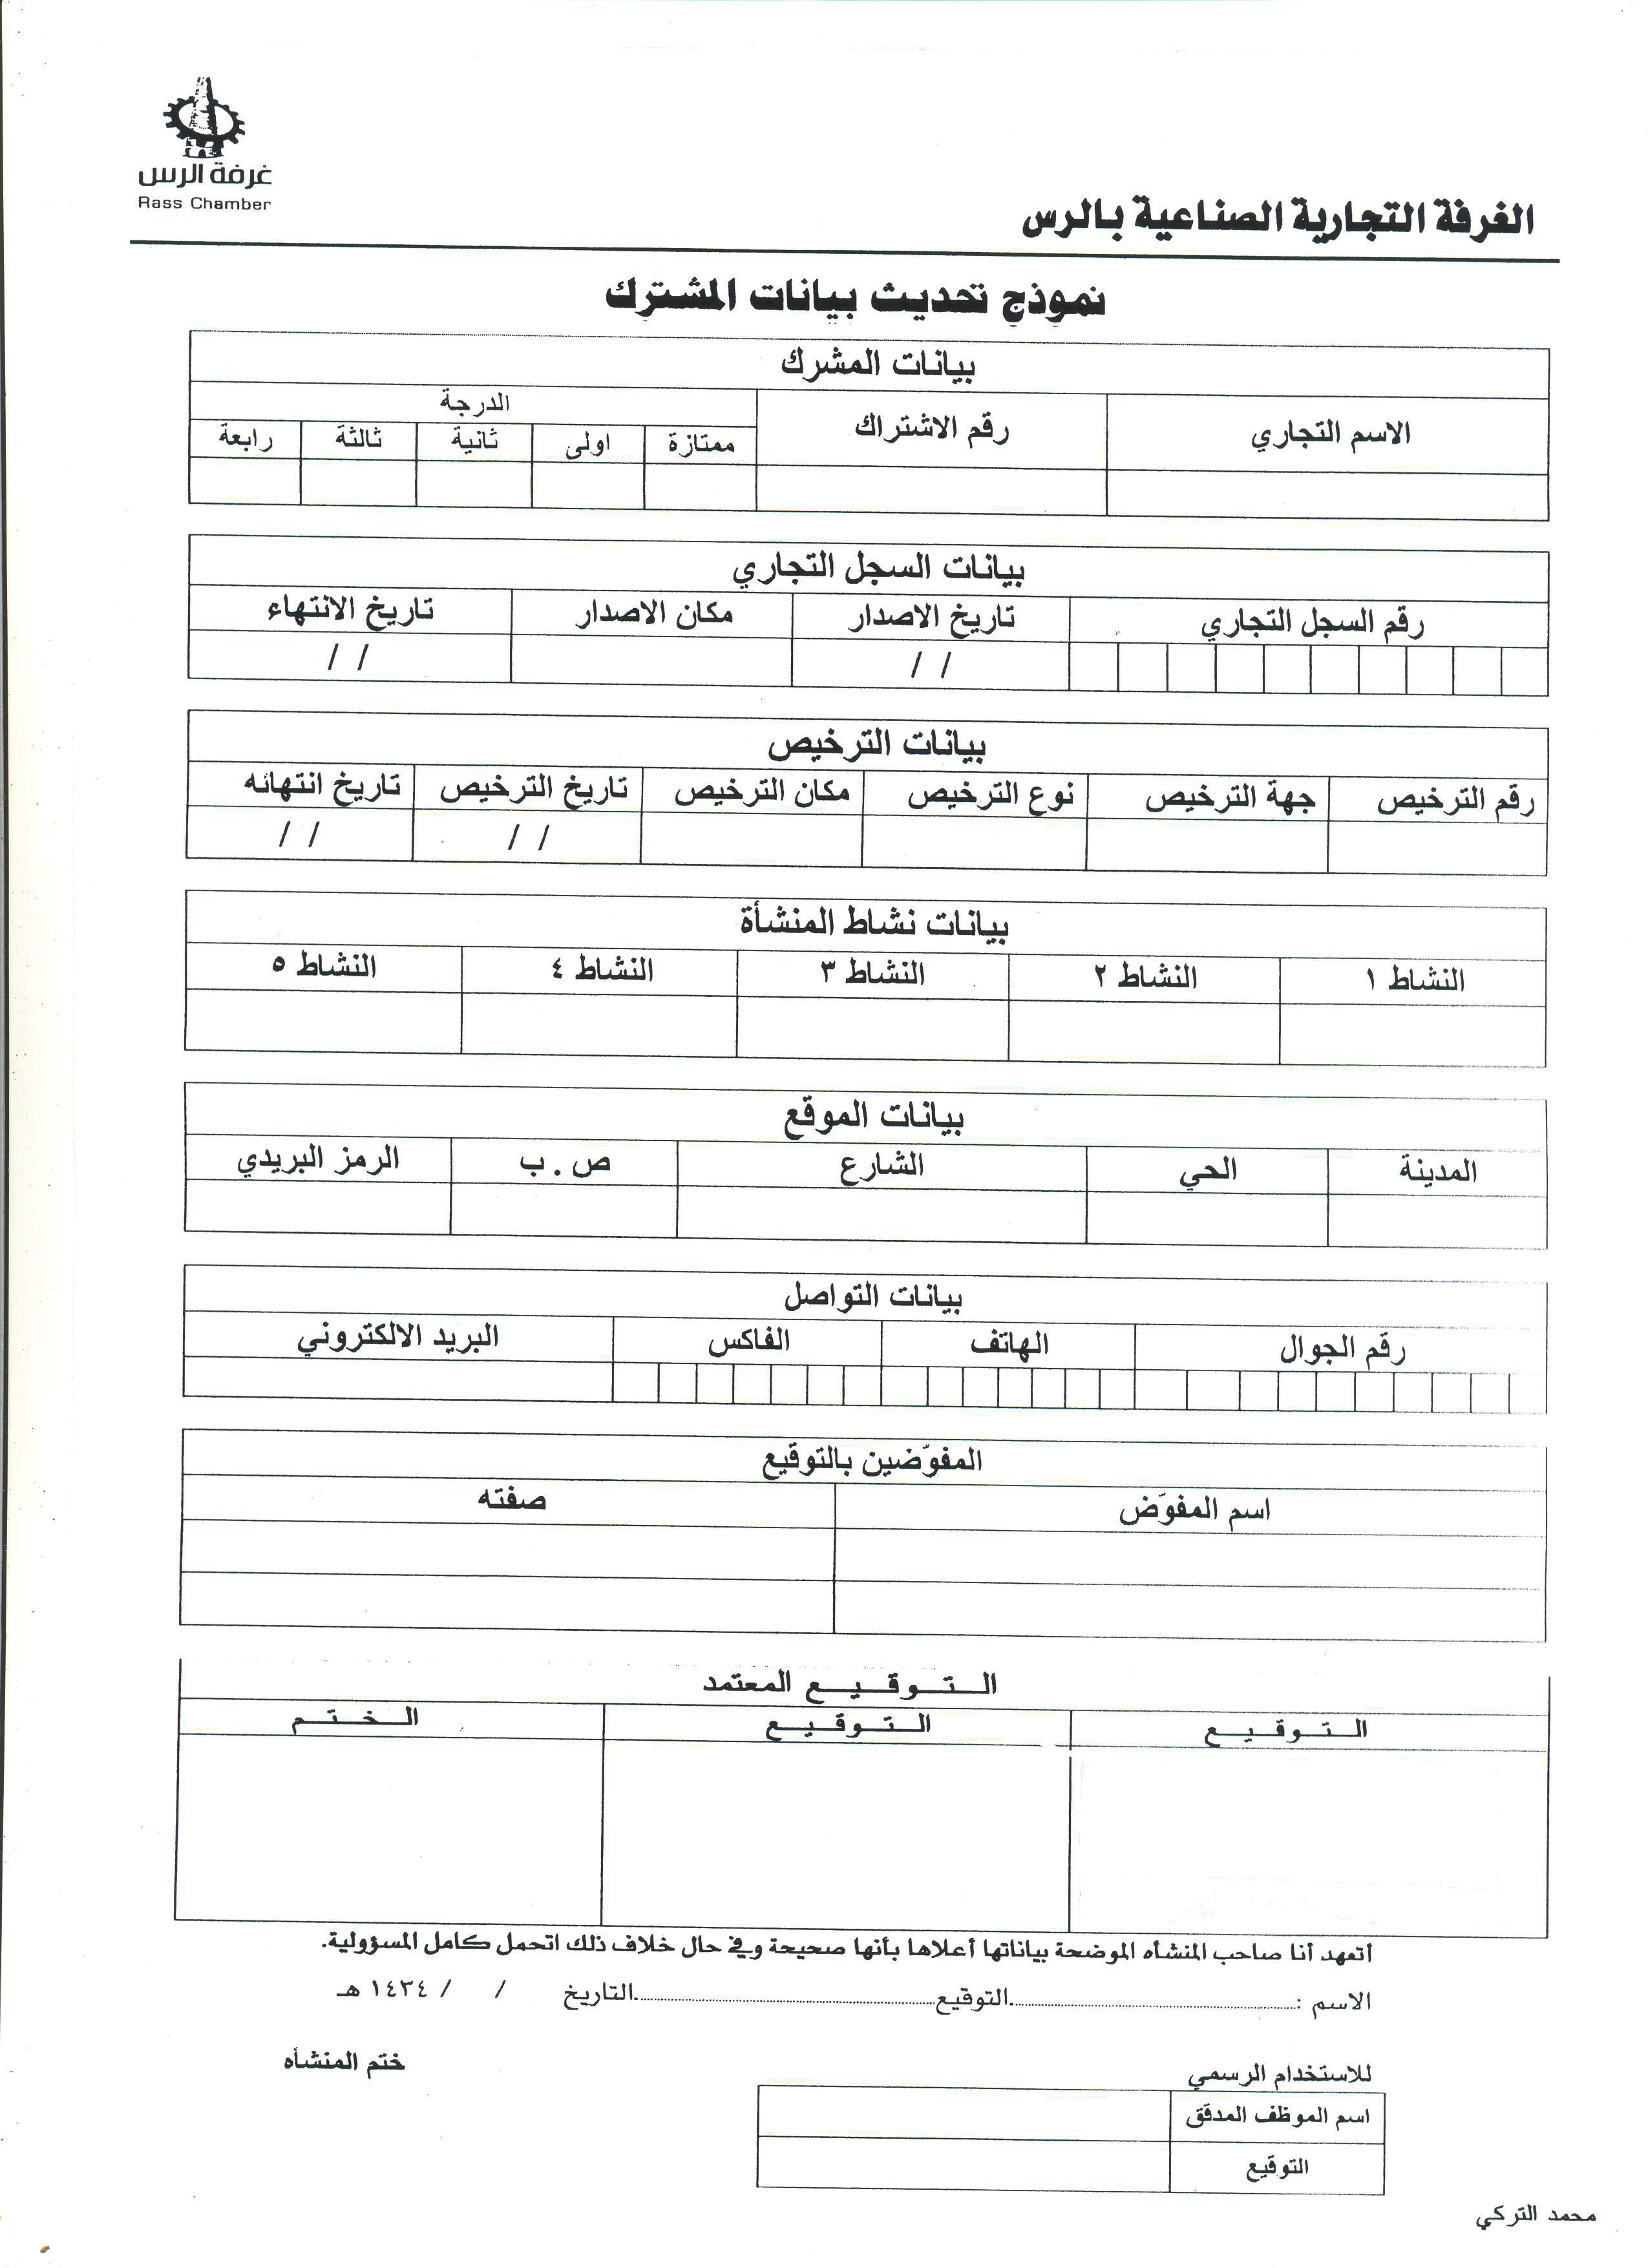 غرفة الرس
Rass Chamber
الغرفة التجارية الصناعية بالرس
نموذج تحديث بيانات المشترك
بيانات المشرك
الاسم التجاري رقم الاشتراك الدرجة
ممتازة اولى ثانية ثالثة رابعة
بيانات السجل التجاري
رقم السجل التجاري تاريخ الاصدار مكان الاصدار تاريخ الانتهاء
/ / / /
بيانات الترخيص
رقم الترخيص جهة الترخيص نوع الترخيص مكان الترخيص تاريخ الترخيص تاريخ انتهائه
/ / / /
بيانات نشاط المنشأة
النشاط ١ النشاط ٢ النشاط ٣ النشاط ٤ النشاط ٥
بيانات الموقع
المدينة الحي الشارع ص . ب الرمز البريدي
بيانات التواصل
رقم الجوال الهاتف الفاكس البريد الالكتروني
المفوّضين بالتوقيع
اسم المفوّض صفته
الـتـوقـيـع المعتمد
الـتـوقـيـع الـتـوقـيـع الـخـتـم
أتعهد أنا صاحب المنشأه الموضحة بياناتها أعلاها بأنها صحيحة وفي حال خلاف ذلك اتحمل كامل المسؤولية.
الاسم :..............................التوقيع..............................التاريخ / / ١٤٣٤ هـ
ختم المنشأه
للاستخدام الرسمي
اسم الموظف المدقق
التوقيع
محمد التركي